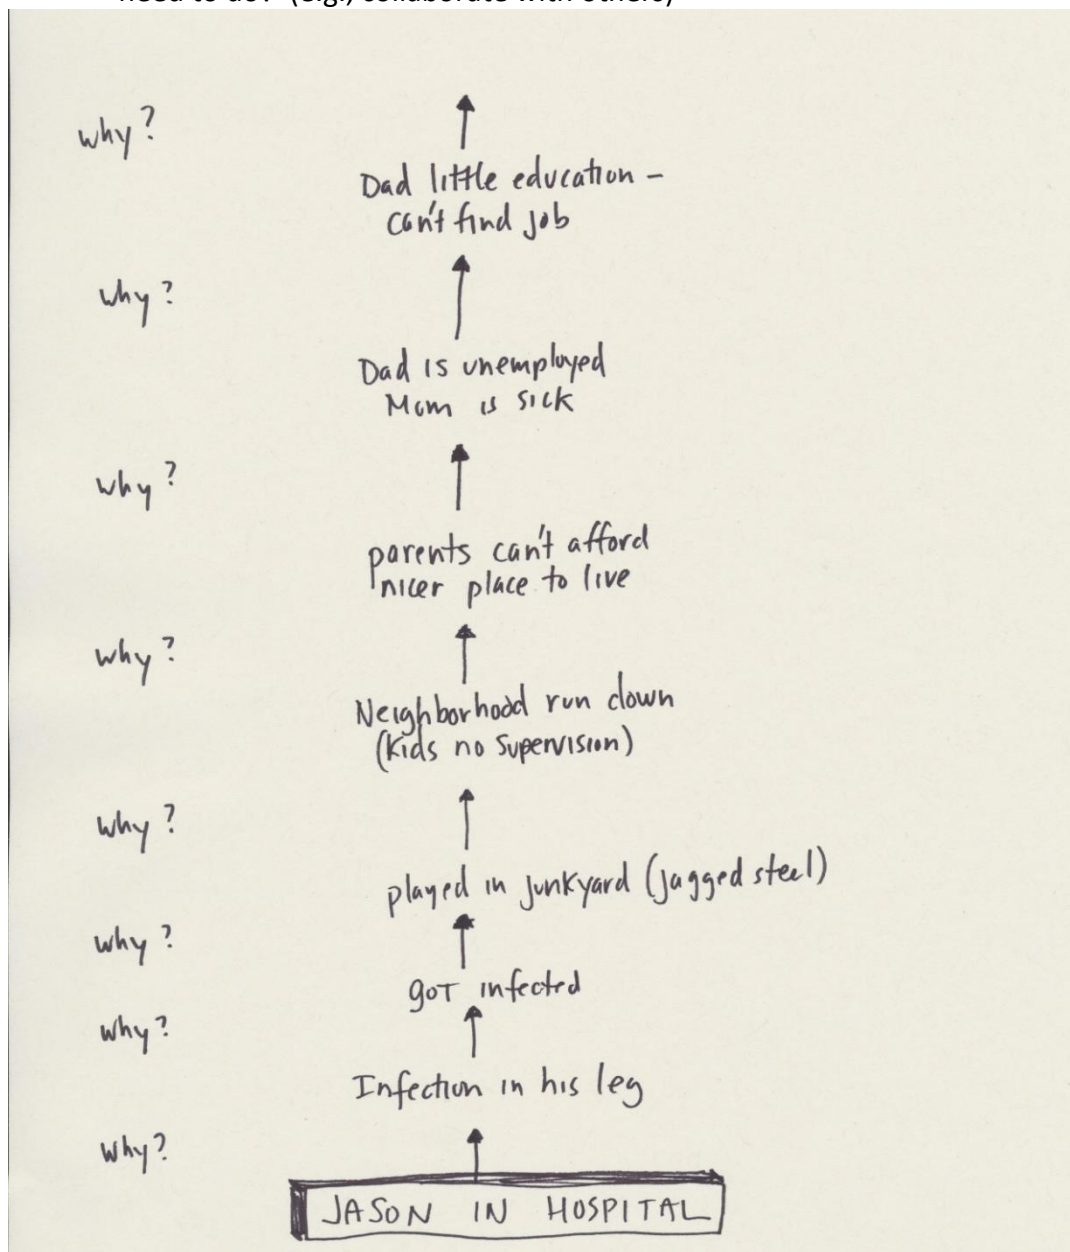 need to do? (e.g., collaborate with others)
why?
Dad little education –
can't find job
why?
Dad is unemployed
Mom is sick
why?
parents can't afford
nicer place to live
why?
Neighborhood run down
(kids no supervision)
why?
played in junkyard (jagged steel)
why?
goT infected
why?
Infection in his leg
why?
JASON IN HOSPITAL